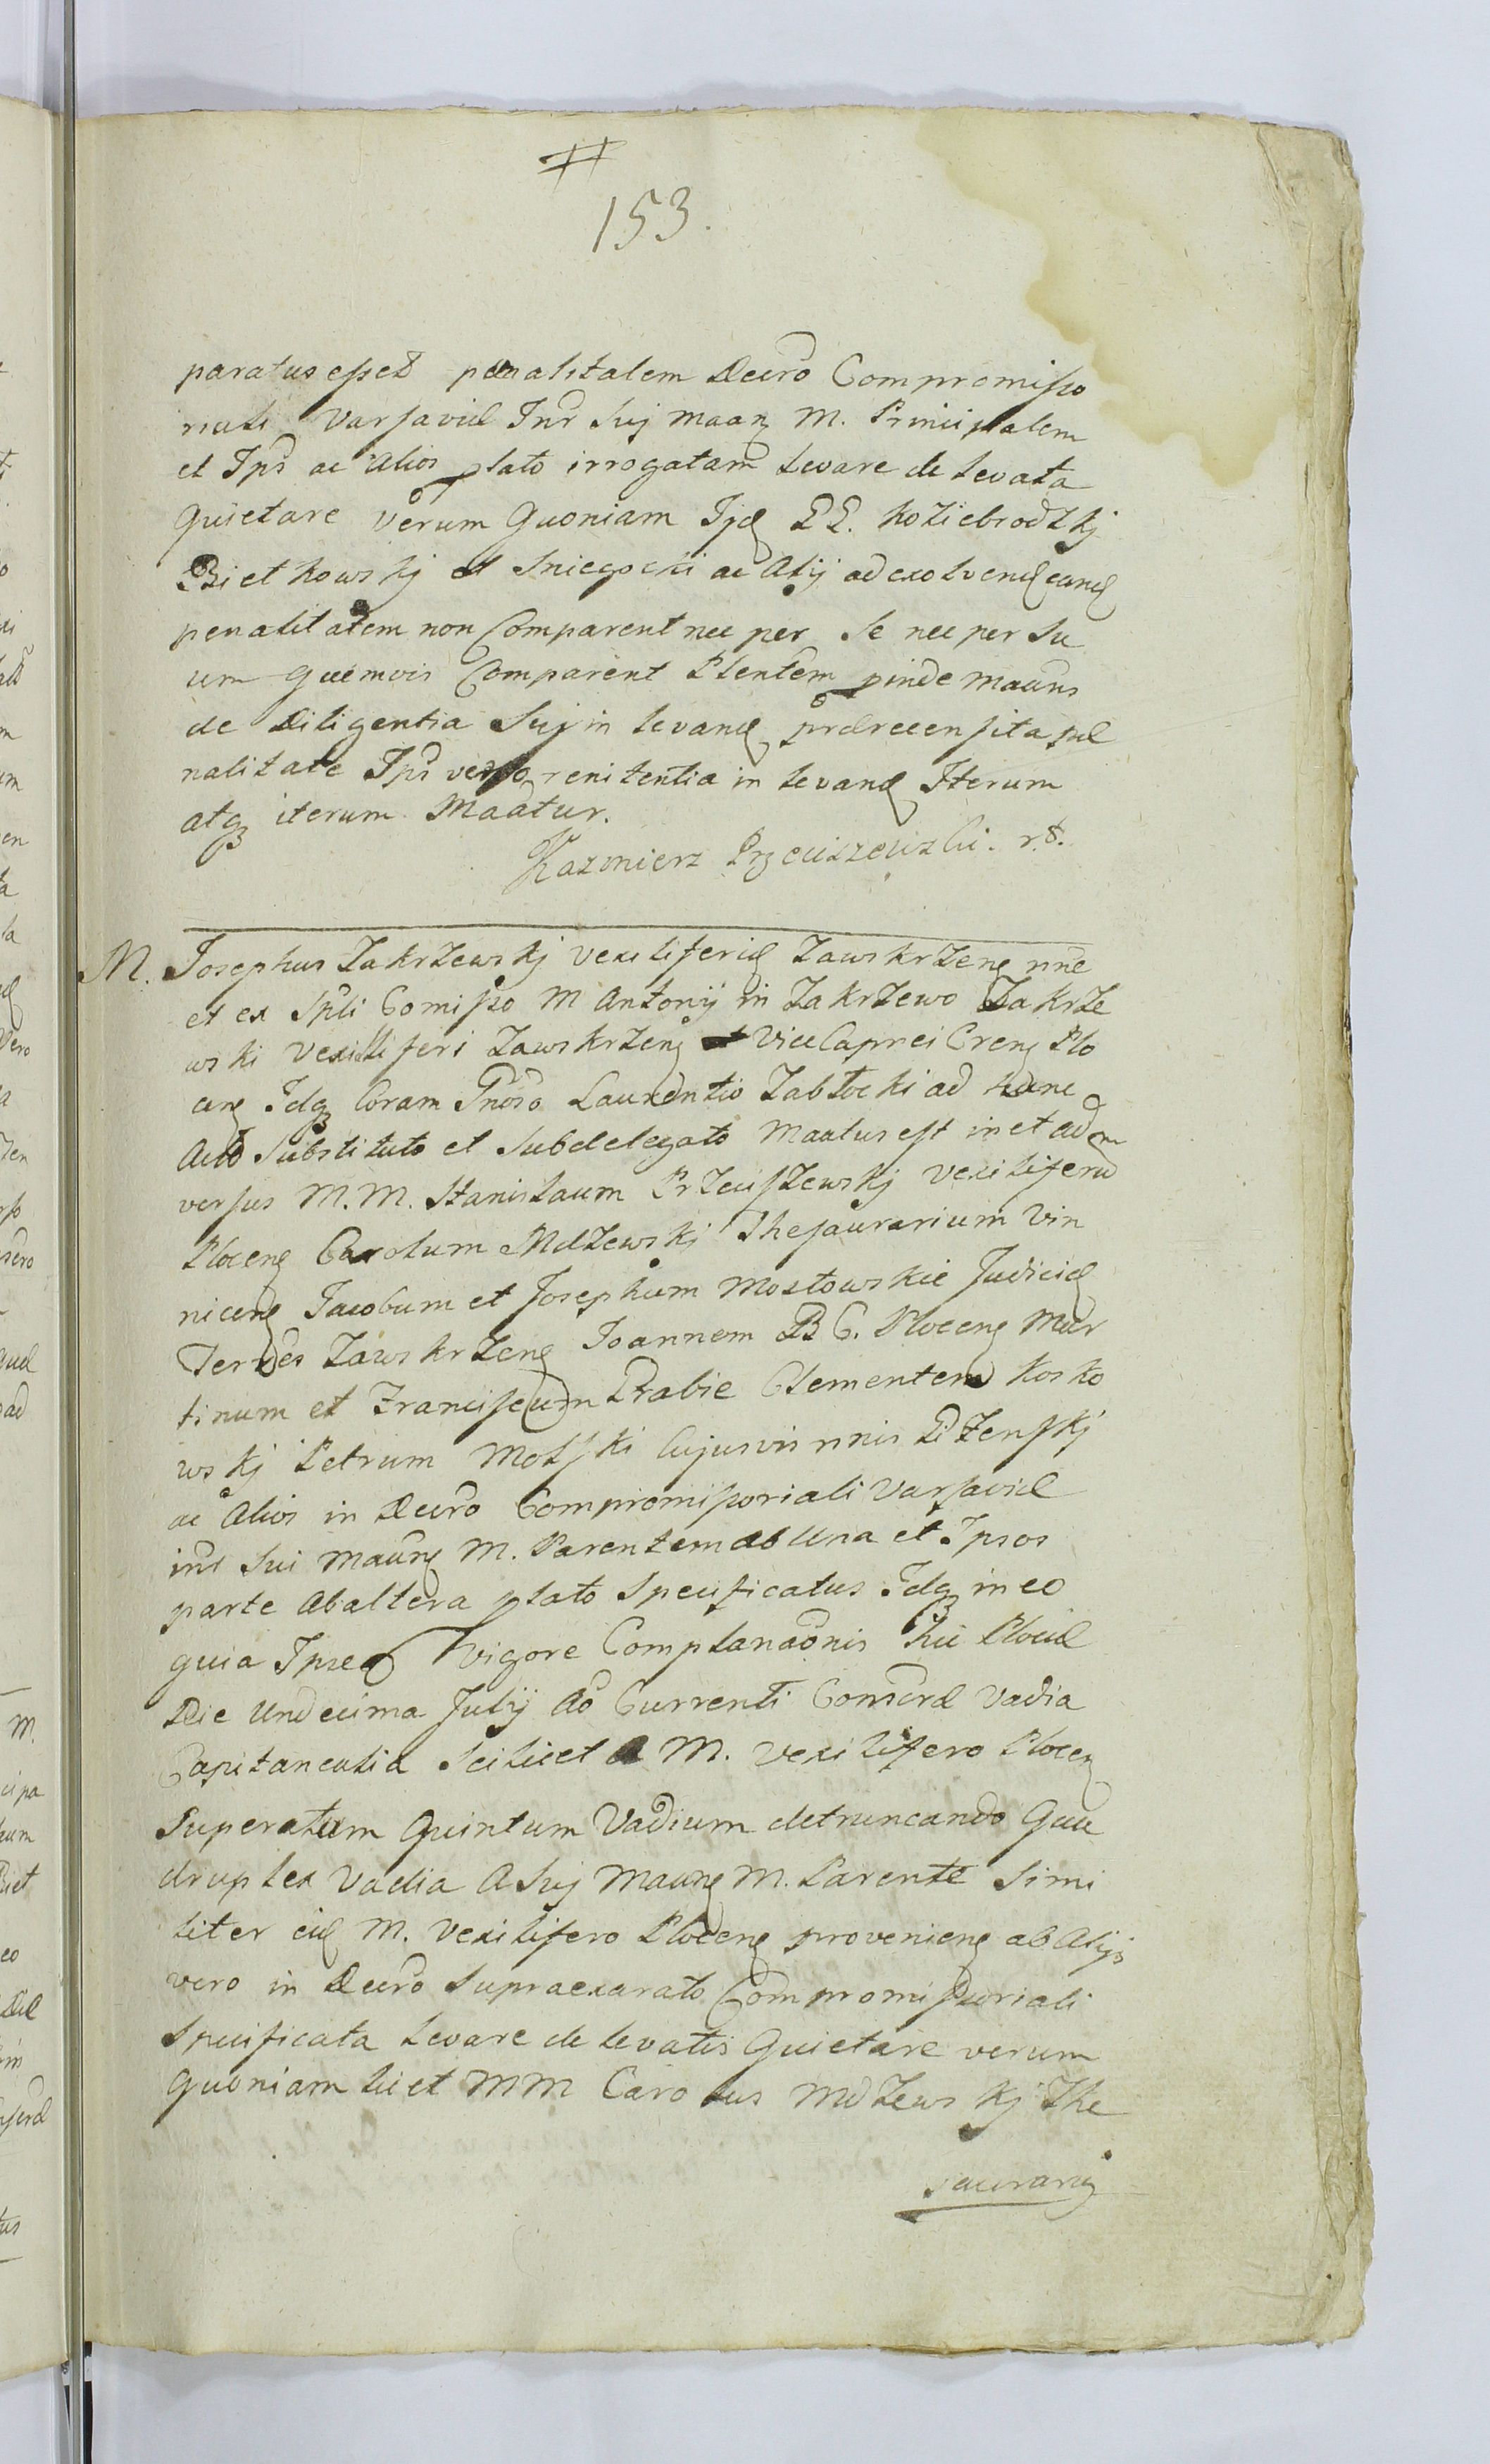 153.
paratus esset penalitatem Decro Compromisso
riali Varsaviae Intr Suj Maan M. Principalem
et Ips ac Alios plato irrogatam levare de levata
Quietare verum Quoniam Ijd PP. Koziebrodzkj
Bietkowskj et Sniegocki ac Alij ad exolvend eand
penalitatem non Comparent nec per Se nec per Su
um quemvis Comparent Plentem pinde Maans
de Diligentia Suj in levand praerecensita pae
nalitate Ips vero renitentia in levand Iterum
atq iterum Maatur.
Kazimierz Przeciszewski
M. Josephus Zakrzewskj Vexiliferid Zawskrzen nne
et ex Spli Comisso M Antonij in Zakrzewo Zakrze
wski Vexilliferi Zawskrzen ViceCapnei Cren Plo
cen Idq Coram Laurentio Zabłocki ad hunc
Actũ Substituto et Subdelegato Maatus est in et ad
versus M.M. Stanislaum Przeciszewskj Vexiliferũ
Plocen Carolum Mdzewskj Thesaurarium Vin
nicen Jacobum et Josephum Mostowskie Judicid
Terres Zawskrzen Joannem B G. Plocen Mar
tinum et Franciscum Drabie Clementem Kosko
wskj Petrum Molski Cujusvis nnis Dizenskj
ac Alios in Decro Compromissoriali Varsaviae
intr Sui Maan M. Parentem ab Una et Ipsos
parte Ab altera plato Specificatus Idq in eo
quia Ipse vigore Complanaonis hic Plociae
Die Undecima Julij Ao Currenti Conserae Vadia
Capitanealia Scilicet A M. Vexilifero Plocen
Superatum Quintum Vadium detruncando Qua
druplex Vadia A Suj Maan M. Parente Simi
liter eid M. Vexilifero Plocen provenien ab Alijs
vero in Decro Supraexarato Compromissoriali
Specificata levare de levatis Quietare verum
Quoniam licet MM Carolus Mdzewskj The
saurarij